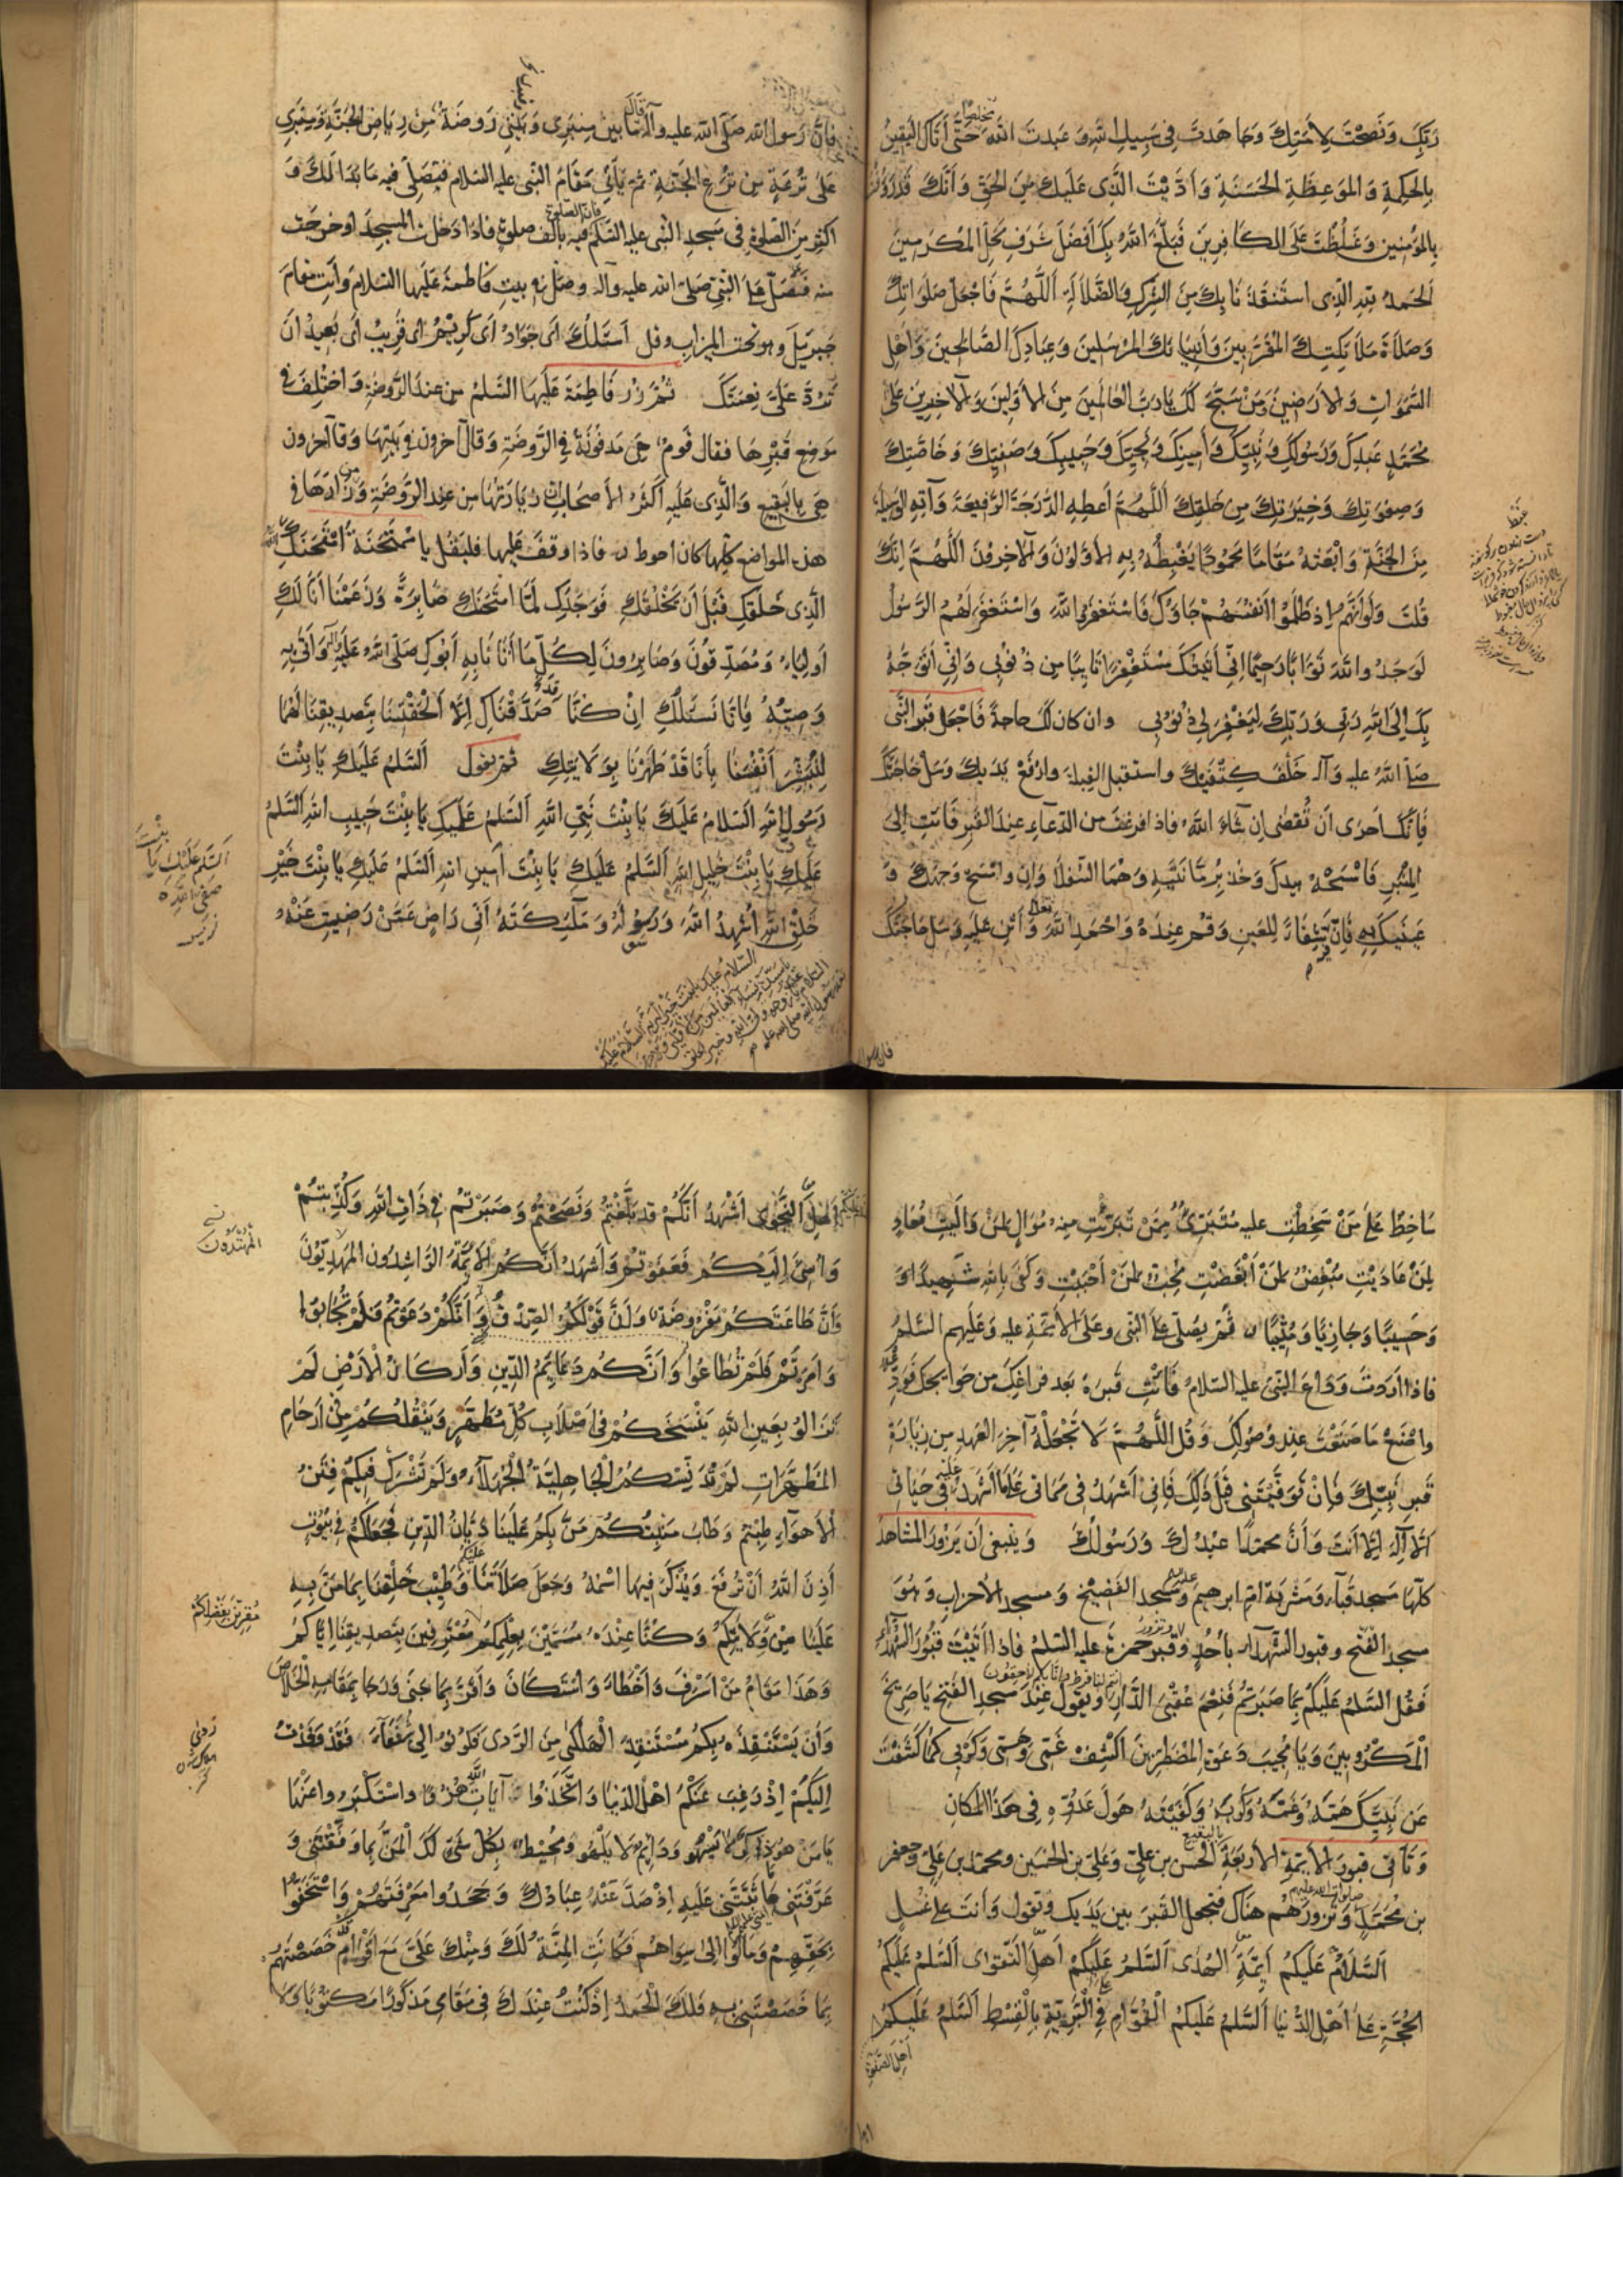 رَبِّكَ وَنَصَحْتَ لِأُمَّتِكَ وَجَاهَدتَ فِي سَبِيلِ اللهِ وَعَبَدتَ اللهَ حَتَّى أَتَاكَ الْيَقِينُ
بِالْحِكْمَةِ وَالْمَوْعِظَةِ الْحَسَنَةِ وَأَدَّيْتَ الَّذِي عَلَيْكَ مِنَ الْحَقِّ وَأَنَّكَ قَدْ رَؤُفْتَ
بِالْمُؤْمِنِينَ وَغَلُظْتَ عَلَى الْكَافِرِينَ فَبَلَّغَ اللهُ بِكَ أَفْضَلَ شَرَفِ مَحَلِّ الْمُكَرَّمِينَ
اَلْحَمْدُ لِلّهِ الَّذِي اسْتَنْقَذَنَا بِكَ مِنَ الشِّرْكِ وَالضَّلَالَةِ اَللَّهُمَّ فَاجْعَلْ صَلَوَاتِكَ
وَصَلَاةَ مَلَائِكَتِكَ الْمُقَرَّبِينَ وَأَنْبِيَائِكَ الْمُرْسَلِينَ وَعِبَادِكَ الصَّالِحِينَ وَأَهْلِ
السَّمَوَاتِ وَالْأَرَضِينَ وَمَنْ سَبَّحَ لَكَ يَا رَبَّ الْعَالَمِينَ مِنَ الْأَوَّلِينَ وَالْآخِرِينَ عَلَى
مُحَمَّدٍ عَبْدِكَ وَرَسُولِكَ وَنَبِيِّكَ وَأَمِينِكَ وَنَجِيِّكَ وَحَبِيبِكَ وَصَفِيِّكَ وَخَاصَّتِكَ
وَصَفْوَتِكَ وَخِيَرَتِكَ مِنْ خَلْقِكَ اَللَّهُمَّ أَعْطِهِ الدَّرَجَةَ الرَّفِيعَةَ وَآتِهِ الْوَسِيلَةَ
مِنَ الْجَنَّةِ وَابْعَثْهُ مَقَامًا مَحْمُودًا يَغْبِطُهُ بِهِ الْأَوَّلُونَ وَالْآخِرُونَ اَللَّهُمَّ إِنَّكَ
قُلْتَ وَلَوْ أَنَّهُمْ إِذْ ظَلَمُوا أَنْفُسَهُمْ جَاؤُكَ فَاسْتَغْفَرُوا اللهَ وَاسْتَغْفَرَ لَهُمُ الرَّسُولُ
لَوَجَدُوا اللهَ تَوَّابًا رَحِيمًا إِنِّي أَتَيْتُكَ مُسْتَغْفِرًا تَائِبًا مِنْ ذُنُوبِي وَإِنِّي أَتَوَجَّهُ
بِكَ إِلَى اللهِ رَبِّي وَرَبِّكَ لِيَغْفِرَ لِي ذُنُوبِي وان كان لك حاجة فَاجْعَلْ قَبْرَ النَّبِي
صَلَّى اللهُ عليه وَآله خَلْفَ كَتِفَيْكَ واستقبل القبلة وارْفَعْ يَدَيْكَ وَسَلْ حَاجَتَكَ
فَإِنَّكَ أَحْرَى أَن تُقْضَى إِن شَاءَ اللهُ فاذا فرغت من الدّعاءِ عِنْدَ القبْرِ فَائت إِلَى
الْمِنْبَرِ فَامْسَحْهُ بِيَدِكَ وَخُذْ بِرُمَّانَتَيْهِ وَهُمَا السُّفْلَاوَانِ وَامْسَحْ وَجْهَكَ وَ
عَيْنَيْكَ بِهِ فَإِنَّ فِيهِ شِفَاءً لِلْعَيْنِ وَقُمْ عِنْدَهُ وَاحْمَدِ اللهَ تعالى وَأَثْنِ عَلَيْهِ وَسَلْ حَاجَتَكَ
فان رسول
فَإِنَّ رَسُولَ اللهِ صَلَّى اللهُ عليه وآله قَالَ مَا بَيْنَ مِنْبَرِي وَبَيْتِي رَوْضَةٌ مِنْ رِيَاضِ الْجَنَّةِ وَمِنْبَرِي
عَلَى تُرْعَةٍ مِنْ تُرَعِ الْجَنَّةِ ثُمَّ يَأْتِي مَقَامَ النَّبِي عليه السلام فَيُصَلِّي فيه مَا بَدَا لَكَ وَ
اكْثِر مِنَ الصَّلوةِ فِي مَسْجِدِ النَّبِي عليه السَّلم فَإِنَّ الصَّلوةَ فيه بِأَلف صلوةٍ فاذا دَخَلْتَ المسجِدَ اوْ خرجت
منه فَصَلِّ عَلَى النَّبِي صَلَّى الله عليه وآله وصَلّ في بيتِ فَاطِمَةَ عَلَيْهَا السَّلامُ وَأْتِ مَقَامَ
جِبرَئِيلَ وهو تحت الميزابِ وقل أَسْئَلُكَ اى جَوَادُ أَىْ كَرِيمُ اى قَرِيبُ أى بَعِيدُ انْ
تَرُدَّ عَلَيَّ نِعْمَتَكَ ثُمَّ زُرْ فَاطِمَةَ عَلَيْهَا السَّلمُ مِن عِند الرَّوضَةِ وَاخْتُلِفَ فِي
مَوضِع قَبْرِهَا فقال قَومٌ هِيَ مَدفُونَةٌ فِي الرَّوضَةِ وَقَالَ آخرون فِي بَيْتِهَا وَقال آخرون
هِيَ بِالْبَقِيعِ وَالَّذِي عَلَيهِ اكْثَرُ الأَصحَابِ زِيَارَتُهَا مِن عِند الرَّوْضَةِ وَمن زارَهَا فِي
هذه المواضع كلّها كان احوط فاذا وقف عَليها فليَقُلْ يا مُمْتَحَنَةُ امْتَحَنَكِ اللهُ
الَّذِي خَلَقَكِ قَبْلَ أَنْ يَخْلُقَكِ فَوَجَدَكِ لِمَا امْتَحَنَكِ صَابِرَةً وَزَعَمْنَا أَنَّا لَكِ
أَوْلِيَاءُ وَمُصَدِّقُونَ وَصَابِرُونَ لِكُلِّ مَا أَتَانَا بِهِ أَبُوكِ صَلَّى اللهُ عَلَيْهِ وآله وَأَتَى بِهِ
وَصِيُّهُ فَإِنَّا نَسْئَلُكِ إِنْ كُنَّا صَدَّقْنَاكِ إِلَّا أَلْحَقْتِنَا بِتَصْدِيقِنَا لَهُمَا
لِنُبَشِّرَ أَنْفُسَنَا بِأَنَّا قَدْ طَهُرْنَا بِوَلَايَتِكِ ثم يقول اَلسَّلمُ عَلَيْكِ يَا بِنْتَ
رَسُولِ اللهِ اَلسَّلامُ عَلَيْكِ يَا بِنْتَ نَبِيِّ اللهِ اَلسَّلمُ عَلَيْكِ يَا بِنْتَ حَبِيبِ اللهِ السَّلمُ
عَلَيْكِ يَا بِنْتَ خَلِيلِ اللهِ اَلسَّلمُ عَلَيْكِ يَا بِنْتَ أَمِينِ اللهِ اَلسَّلمُ عَلَيْكِ يَا بِنْتَ خَيْرِ
خَلْقِ اللهِ أُشْهِدُ اللهَ وَرَسُولَهُ وَمَلَئِكَتَهُ أَنِّي رَاضٍ عَمَّنْ رَضِيتِ عَنْهُ
السَّلم عَلَيْكِ يَا بِنْتَ
صفي الله
سَاخِطٌ عَلَى مَنْ سَخِطْتِ عليه مُتَبَرِّئٌ مِمَّنْ تَبَرَّئْتِ مِنْهُ مُوَالٍ لِمَنْ وَالَيْتِ مُعَادٍ
لِمَنْ عَادَيْتِ مُبْغِضٌ لِمَنْ أَبْغَضْتِ مُحِبٌّ لِمَنْ أَحْبَبْتِ وَكَفَى بِاللهِ شَهِيدًا وَ
وَحَسِيبًا وَجَازِيًا وَمُثِيبًا ثُمَّ يُصَلّي عَلَى النَّبِي وعَلَى الأَئِمَّةِ عليه وعَلَيهِم السَّلمُ
فاذا أَرَدتَ وَدَاعَ النَّبِيّ عليه السّلامُ فَائْتِ قَبْرَهُ بَعْدَ فراغِكَ مِن حَوَائِجِكَ فَوَدِّعْهُ
واصْنَعْ مَا صَنَعْتَ عِنْدَ وُصُولِكَ وَقُلِ اللَّهُمَّ لَا تَجْعَلْهُ آخِرَ الْعَهْدِ مِن زِيَارَةِ
قَبرِ نَبِيِّكَ فَإِنْ تَوَفَّيْتَنِي قَبْلَ ذَلِكَ فَإِنِّي أَشْهَدُ فِي مَمَاتِي عَلَى مَا أَشْهَدُ عليه فِي حَيَاتِي
أَنْ لَا إِلَهَ إِلَّا أَنْتَ وَأَنَّ مُحَمَّدًا عَبْدُكَ وَرَسُولُكَ وَيَنبغى أن يَزُورَ المشاهدَ
كلّهَا مَسجدَ قُبَاءَ وَمَشْرَبَةَ امِّ ابرهيم وَمَسجد الفَضِيخِ وَمسجد الأحزابِ وَهُوَ
مسجدُ الفَتْحِ وقبورَ الشّهداءِ بأُحُدٍ وَقَبْرَ حَمْزَةَ عليه السّلمُ فاذا اَتَيْتَ قُبُورَ الشُّهَدَاءِ
فَقُلِ السَّلمُ عَلَيْكُمْ بِمَا صَبَرْتُمْ فَنِعْمَ عُقْبَى الدَّارِ وَيقُولُ عِنْدَ مَسْجِدِ الفَتْحِ يَا صَرِيخَ
الْمَكْرُوبِينَ وَيَا مُجِيبَ دَعوَةِ الْمُضْطَرِّينَ اكْشِفْ غَمِّي وَهَمِّي وَكَرْبِي كَمَا كَشَفْتَ
عَنْ نَبِيِّكَ هَمَّهُ وَغَمَّهُ وَكَرْبَهُ وَكَفَيْتَهُ هَوْلَ عَدُوِّهِ فِي هَذَا الْمَكَانِ
وَتَأتى قبورَ الأئِمّةِ الأربَعَةِ بِالبَقيعِ الْحَسَن بن عَلِيّ وَعَلِيّ بن الحُسَين ومحمّد بن عَلِيّ وجعفر
بن مُحَمّدٍ صلوات الله عليهم وَتَزُورُهُم هناك فتجعل القَبْرَ بين يَدَيك وَتقول وَأَنتَ عَلى غُسلٍ
اَلسَّلامُ عَلَيْكُمْ أَئِمَّةَ الْهُدَى اَلسَّلمُ عَلَيْكُمْ أَهْلَ التَّقْوَى اَلسَّلمُ عَلَيْكُمُ
الْحُجَّةَ عَلَى أَهْلِ الدُّنْيَا اَلسَّلمُ عَلَيْكُمُ الْقُوَّامَ فِي الْبَرِيَّةِ بِالْقِسْطِ اَلسَّلمُ عَلَيْكُمْ
أَهْلَ الصَّفْوَةِ
أَهْلَ النَّجْوَى أَشْهَدُ أَنَّكُمْ قَدْ بَلَّغْتُمْ وَنَصَحْتُمْ وَصَبَرْتُمْ فِي ذَاتِ اللهِ وَكُذِّبْتُمْ
وَأُسِيءَ إِلَيْكُمْ فَعَفَوْتُمْ وَأَشْهَدُ أَنَّكُمُ الْأَئِمَّةُ الرَّاشِدُونَ الْمَهْدِيُّونَ
وَأَنَّ طَاعَتَكُمْ مَفْرُوضَةٌ وَأَنَّ قَوْلَكُمُ الصِّدْقُ وَأَنَّكُمْ دَعَوْتُمْ فَلَمْ تُجَابُوا
وَأَمَرْتُمْ فَلَمْ تُطَاعُوا وَأَنَّكُمْ دَعَائِمُ الدِّينِ وَأَرْكَانُ الْأَرْضِ لَمْ
تَزَالُوا بِعَيْنِ اللهِ يَنْسَخُكُمْ فِي أَصْلَابِ كُلِّ مُطَهَّرٍ وَيَنْقُلُكُمْ مِنْ أَرْحَامِ
الْمُطَهَّرَاتِ لَمْ تُدَنِّسْكُمُ الْجَاهِلِيَّةُ الْجَهْلَاءُ وَلَمْ تَشْرَكْ فِيكُمْ فِتَنُ
الْأَهْوَاءِ طِبْتُمْ وَطَابَ مَنْبِتُكُمْ مَنَّ بِكُمْ عَلَيْنَا دَيَّانُ الدِّينِ فَجَعَلَكُمْ فِي بُيُوتٍ
أَذِنَ اللهُ أَنْ تُرْفَعَ وَيُذْكَرَ فِيهَا اسْمُهُ وَجَعَلَ صَلَاتَنَا عليكم وَطَيَّبَ خَلْقَنَا بِمَا مَنَّ بِهِ
عَلَيْنَا مِنْ وَلَايَتِكُمْ وَكُنَّا عِنْدَهُ مُسَمَّيْنَ بِعِلْمِكُمْ مُعْتَرِفِينَ بِتَصْدِيقِنَا إِيَّاكُمْ
وَهَذَا مَقَامُ مَنْ أَسْرَفَ وَأَخْطَأَ وَاسْتَكَانَ وَأَقَرَّ بِمَا جَنَى وَرَجَا بِمَقَامِهِ الْخَلَاصَ
وَأَنْ يَسْتَنْقِذَهُ بِكُمْ مُسْتَنْقِذُ الْهَلْكَى مِنَ الرَّدَى فَكُونُوا لِي شُفَعَاءَ فَقَدْ وَفَدْتُ
إِلَيْكُمْ إِذْ رَغِبَ عَنْكُمْ أَهْلُ الدُّنْيَا وَاتَّخَذُوا آيَاتِ اللهِ هُزُوًا واسْتَكْبَرُوا عَنْهَا
يَا مَنْ هُوَ ذَاكِرٌ لَا يَسْهُو وَدَائِمٌ لَا يَلْهُو وَمُحِيطٌ بِكُلِّ شَيْءٍ لَكَ الْمَنُّ بِمَا وَفَّقْتَنِي وَ
عَرَّفْتَنِي مَا ثَبَّتَّنِي عَلَيْهِ إِذْ صَدَّ عَنْهُ عِبَادُكَ وَجَحَدُوا مَعْرِفَتَهُمْ وَاسْتَخَفُّوا
بِحَقِّهِمْ وَمَالُوا إِلَى سِوَاهُمْ فَكَانَتِ الْمِنَّةُ لَكَ وَمِنْكَ عَلَيَّ مَعَ أَقْوَامٍ خَصَصْتَهُمْ
بِمَا خَصَصْتَنِي بِهِ فَلَكَ الْحَمْدُ إِذْ كُنْتُ عِنْدَكَ فِي مَقَامِي مَذْكُورًا مَكْتُوبًا وَلَا